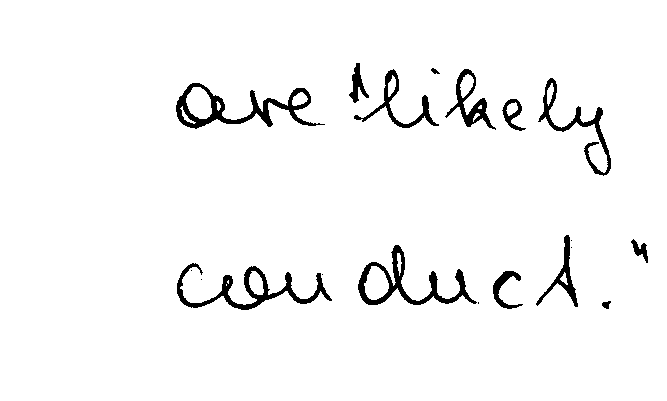 are "likely
conduct."